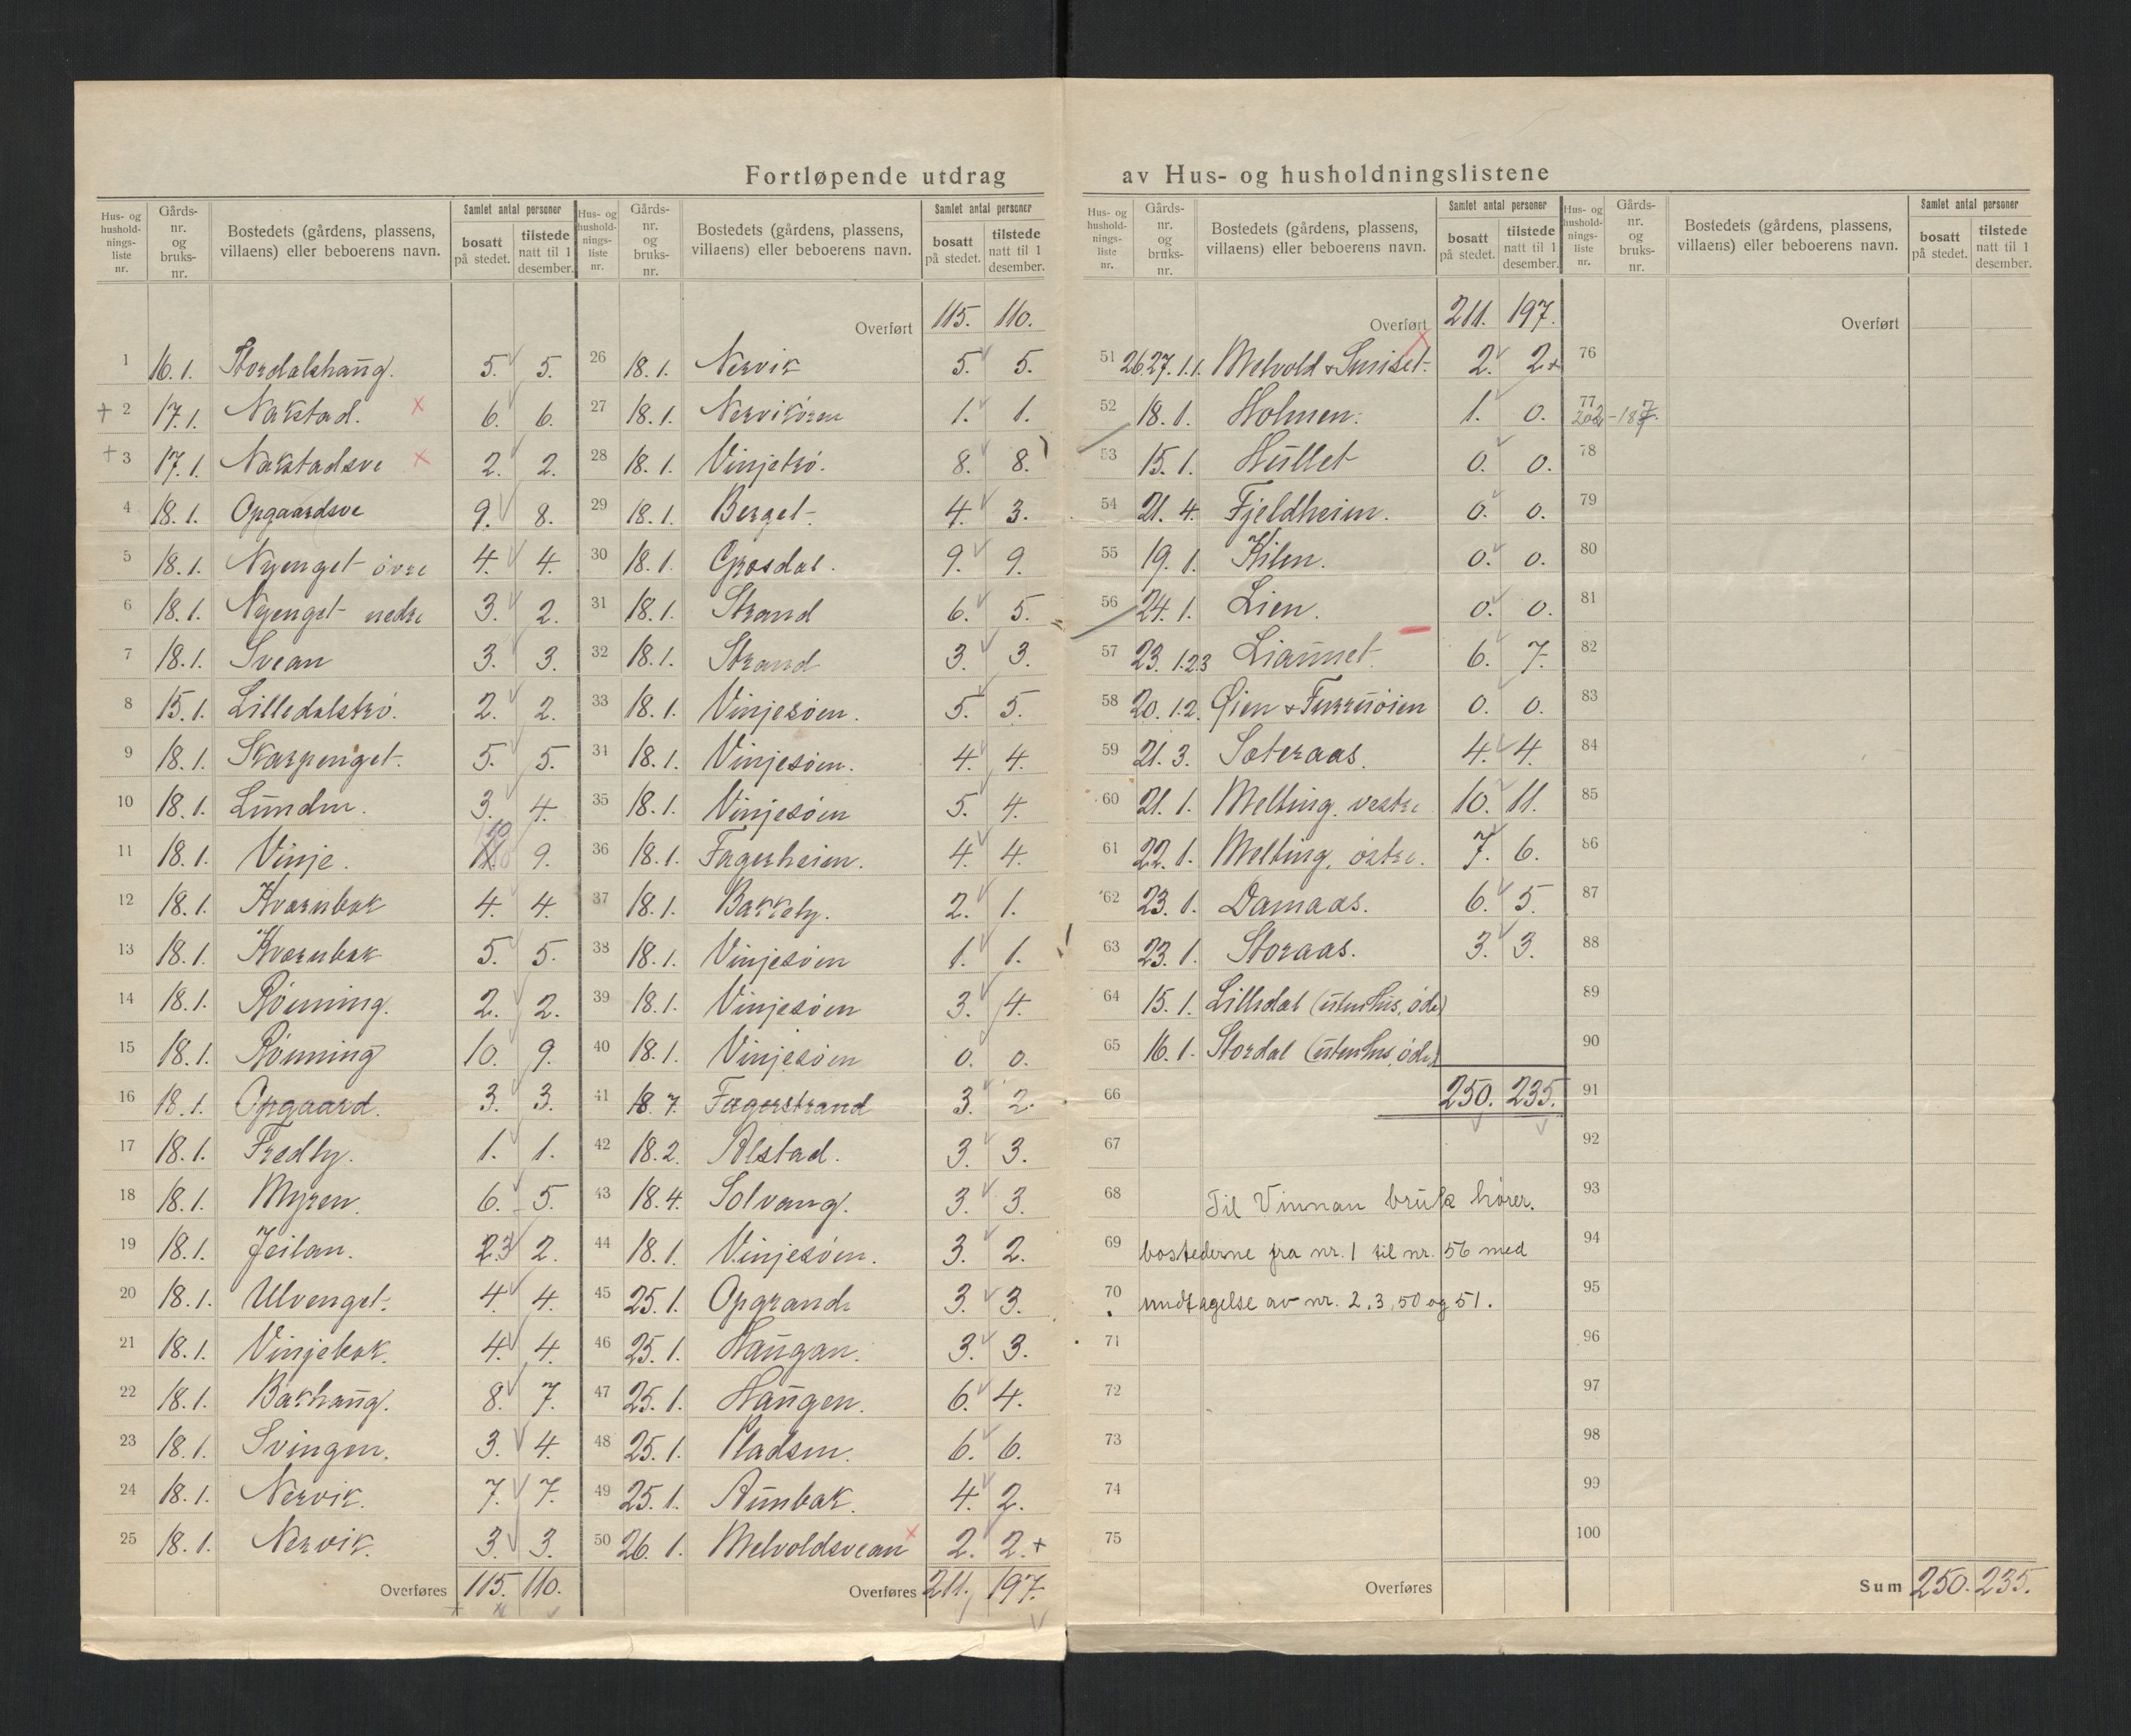 Fortløpende utdrag av Hus- og husholdningslistene
Hus- og hushold- nings- liste nr. | Gårds- nr. og bruks- nr. | Bostedets (gårdens, plassens, villaens) eller beboerens navn. | Samlet antal personer | bosatt på stedet. | tilstede natt til 1 desember.
1 16.1. Stordalshaug. 5. 5.
+ 2 17.1. Nakstad. x 6. 6.
+ 3 17.1. Nakstadsve x 2. 2.
4 18.1. Opgaardsve 9. 8.
5 18.1. Nyenget øvre 4. 4.
6 18.1. Nyenget nedre 3. 2.
7 18.1. Svean 3. 3.
8 15.1. Lilledalstrø. 2. 2.
9 18.1. Skarpenget. 5. 5.
10 18.1. Lunden. 3. 4.
11 18.1. Vinje. 10 9.
12 18.1. Kvernbak 4. 4.
13 18.1. Kvernbak 5. 5.
14 18.1. Rønning. 2. 2.
15 18.1. Rønning 10. 9.
16 18.1. Opgaard. 3. 3.
17 18.1. Fredly. 1. 1.
18 18.1. Myren. 6. 5.
19 18.1. Jeilan. 23 2.
20 18.1. Ulvenget. 4. 4.
21 18.1. Vinjebak. 4. 4.
22 18.1. Bakhaug. 8. 7.
23 18.1. Svingen. 3. 4.
24 18.1. Nervik. 7. 7.
25 18.1. Nervik. 3. 3.
Overføres 115. 110.
Hus- og hushold- nings- liste nr. | Gårds- nr. og bruks- nr. | Bostedets (gårdens, plassens, villaens) eller beboerens navn. | Samlet antal personer | bosatt på stedet. | tilstede natt til 1 desember.
Overført 115. 110.
26 18.1. Nervik 5. 5.
27 18.1. Nervikøren 1. 1.
28 18.1. Vinjetrø. 8. 8.
29 18.1. Berget. 4. 3.
30 18.1. Grøsdal. 9. 9.
31 18.1. Strand 6. 5.
32 18.1. Strand 3. 3.
33 18.1. Vinjesøen. 5. 5.
34 18.1. Vinjesøen. 4. 4.
35 18.1. Vinjesøen 5. 4.
36 18.1. Fagerheim. 4. 4.
37 18.1. Bakkely. 2. 1.
38 18.1. Vinjesøen 1. 1.
39 18.1. Vinjesøen 3. 4.
40 18.1. Vinjesøen 0. 0.
41 18.7. Fagerstrand 3. 2.
42 18.2. Alstad. 3. 3.
43 18.4. Solvang. 3. 3.
44 18.1. Vinjesøen. 3. 2.
45 25.1. Opgrande 3. 3.
46 25.1. Haugan. 3. 3.
47 25.1. Haugen. 6. 4.
48 25.1. Pladsen. 6. 6.
49 25.1. Aunbak. 4. 2.
50 26.1. Melvoldsvean x 2. 2. +
Overføres 211. 197.
Hus- og hushold- nings- liste nr. | Gårds- nr. og bruks- nr. | Bostedets (gårdens, plassens, villaens) eller beboerens navn. | Samlet antal personer | bosatt på stedet. | tilstede natt til 1 desember.
Overført 211. 197.
51 26.27.1.1. Melvold & Suriset. x 2. 2 +
52 18.1. Holmen. 1. 0.
53 15.1. Hullet 0. 0.
54 21.4. Fjeldheim. 0. 0.
55 19.1. Kilen. 0. 0.
56 24.1. Lien. 0. 0.
57 23.1.23 Liaunet. 6. 7.
58 20.1.2. Øien & Furruøien 0. 0.
59 21.3. Sæteraas. 4. 4.
60 21.1. Melting, vestre 10. 11.
61 22.1. Melting, østre. 7. 6.
62 23.1. Damaas. 6. 5.
63 23.1. Storaas. 3. 3.
64 15.1. Lilledal (uten hus, øde)
65 16.1. Stordal (uten hus, øde)
66 250. 235.
67
68 Til Vinnan bruk hører.
69 bostederne fra nr. 1 til nr. 56 med
70 undtagelse av nr. 2, 3, 50 og 51.
71
72
73
74
75
Overføres
Hus- og hushold- nings- liste nr. | Gårds- nr. og bruks- nr. | Bostedets (gårdens, plassens, villaens) eller beboerens navn. | Samlet antal personer | bosatt på stedet. | tilstede natt til 1 desember.
Overført
76
77 202-187.
78
79
80
81
82
83
84
85
86
87
88
89
90
91
92
93
94
95
96
97
98
99
100
Sum 250. 235.